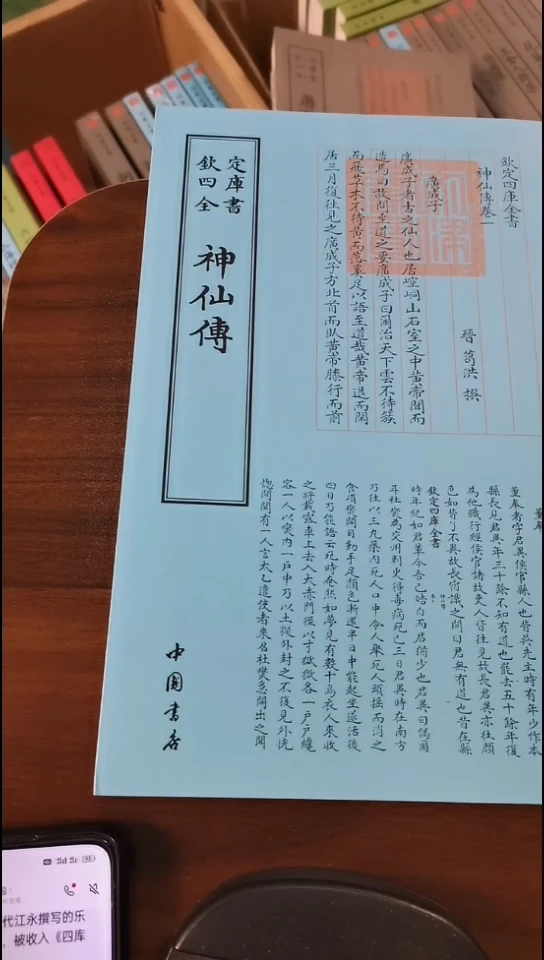 欽定四庫全書
神仙傳
中國書店
欽定四庫全書
神仙傳卷一
晉 葛洪 撰
廣成子
廣成子者古之仙人也居崆峒山石室之中黃帝聞而
造焉曰敢問至道之要廣成子曰爾治天下雲不待簇
而飛草木不待黃而落奚足以語至道哉黃帝退而閑
居三月復往見之廣成子方北首而臥黃帝膝行而前
董奉
董奉者字君異侯官縣人也昔吳先主時有年少作本
縣長見君異年三十餘不知有道也罷去五十餘年復
為他職行經侯官諸故吏人皆往見故長君異亦往顏
色如昔了不異故長宿識之問曰君無有道也昔在縣
欽定四庫全書
時年紀如君輩今吾已皓白而君猶少也君異曰偶爾
杜燮為交州刺史得毒病死已三日君異時在南方
乃往以三丸藥內死人口中令人舉死人頭搖而消之
食頃燮開目動手足顏色漸還半日中能起坐遂活後
四日乃能語云死時奄然如夢見有數十烏衣人來收
之將載露車上去入大赤門徑以寸獄獄各一戶戶纔
容一人以燮內一戶中乃以土從外封之不復見外恍
惚間聞有一人言太乙遣使者來召杜燮急開出之聞
代江永撰写的乐
，被收入《四库